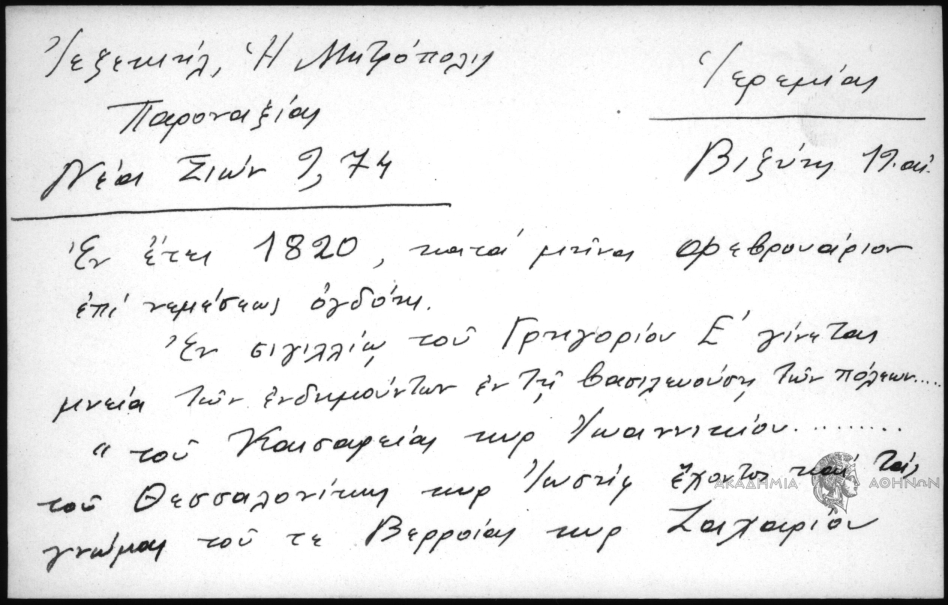 Ἰεζεκιήλ, Ἡ Μητρόπολις
Παροναξίας
Νέα Σιών 9, 74
Ἰερεμίας
Βιζύης 19. αἰ.
Ἐν ἔτει 1820, κατά μῆνα Φεβρουάριον
ἐπί νεμέσεως ὀγδόης.
Ἐν σιγιλλίῳ τοῦ Γρηγορίου Ε΄ γίνεται
μνεία τῶν ἐνδημούντων ἐν τῇ βασιλευούσῃ τῶν πόλεων.....
" τοῦ Καισαρείας κυρ Ἰωαννικίου..........
τοῦ Θεσσαλονίκης κυρ Ἰωσήφ ἔχοντος καί τάς
γνώμας τοῦ τε Βερροίας κυρ Ζαχαρίου
ΑΚΑΔΗΜΙΑ ΑΘΗΝΩΝ